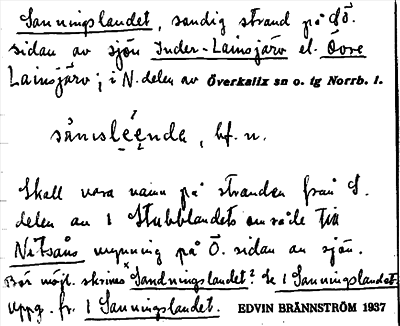 Sanningslandet, sandig strand på SÖ.
sidan av sjön Inder-Lainsjärv el. Övre
Lainsjärv; i N. delen av Överkalix sn o. tg Norrb. l.
bf. n.
Skall vara namn på stranden från S.
delen av 1 Stubblandets område till
Nitsåns mynning på Ö. sidan av sjön.
Bör möjl. skrivas *Sandningslandet? Se 1 Sanningslandet.
Uppg. fr. 1 Sanningslandet. EDVIN BRÄNNSTRÖM 1937